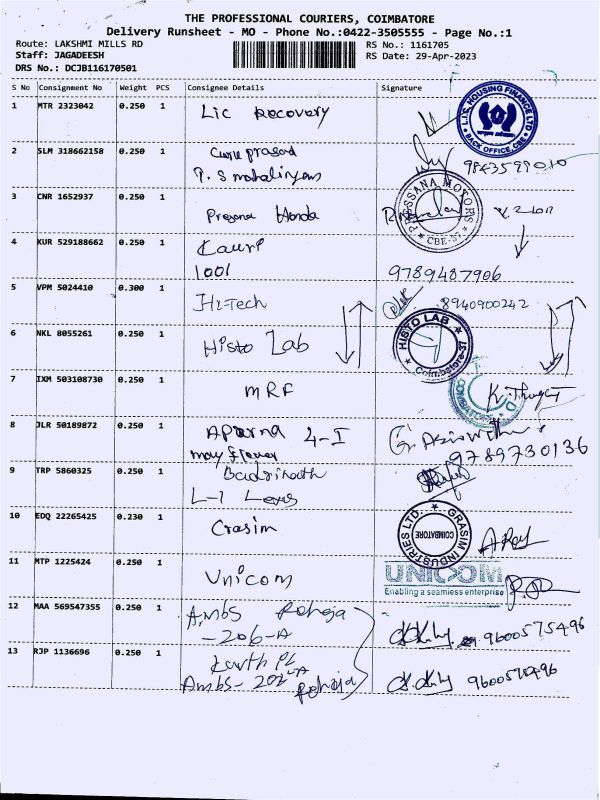 THE PROFESSIONAL COURIERS, COIMBATORE
Delivery Runsheet - MO - Phone No.:0422-3505555 - Page No.:1
Route: LAKSHMI MILLS RD
RS No.: 1161705
Staff: JAGADEESH
RS Date: 29-Apr-2023
DRS No.: DCJB116170501
S No Consignment No Weight PCS Consignee Details Signature
1 MTR 2323042 0.250 1 Lic Recovery
L.I.C. HOUSING FINANCE LTD
BACK OFFICE, CBE
2 SLM 318662158 0.250 1 prasad
P.S
3 CNR 1652937 0.250 1 Presana Honda
PRESSANA MOTORS
CBE-37
4 KUR 529188662 0.250 1 Kauri
1001 9789487906
5 VPM 5024410 0.300 1 HiTech 8940900242
6 NKL 8055261 0.250 1 Histo Lab
HISTO LAB
Coimbatore-37
7 IXM 503108730 0.250 1 MRF
COIMBATORE
8 JLR 50189872 0.250 1 Aparna 4-I
may flower 9789730136
9 TRP 5860325 0.250 1 Badrinath
L-1
10 EDQ 22265425 0.230 1 Grasim
GRASIM INDUSTRIES LTD.
COIMBATORE
11 MTP 1225424 0.250 1 Unicom
UNICOM
Enabling a seamless enterprise
12 MAA 569547355 0.250 1 Ambs Raheja
-206-A 9600575496
13 RJP 1136696 0.250 1
Ambs- 202-A Raheja 9600575496